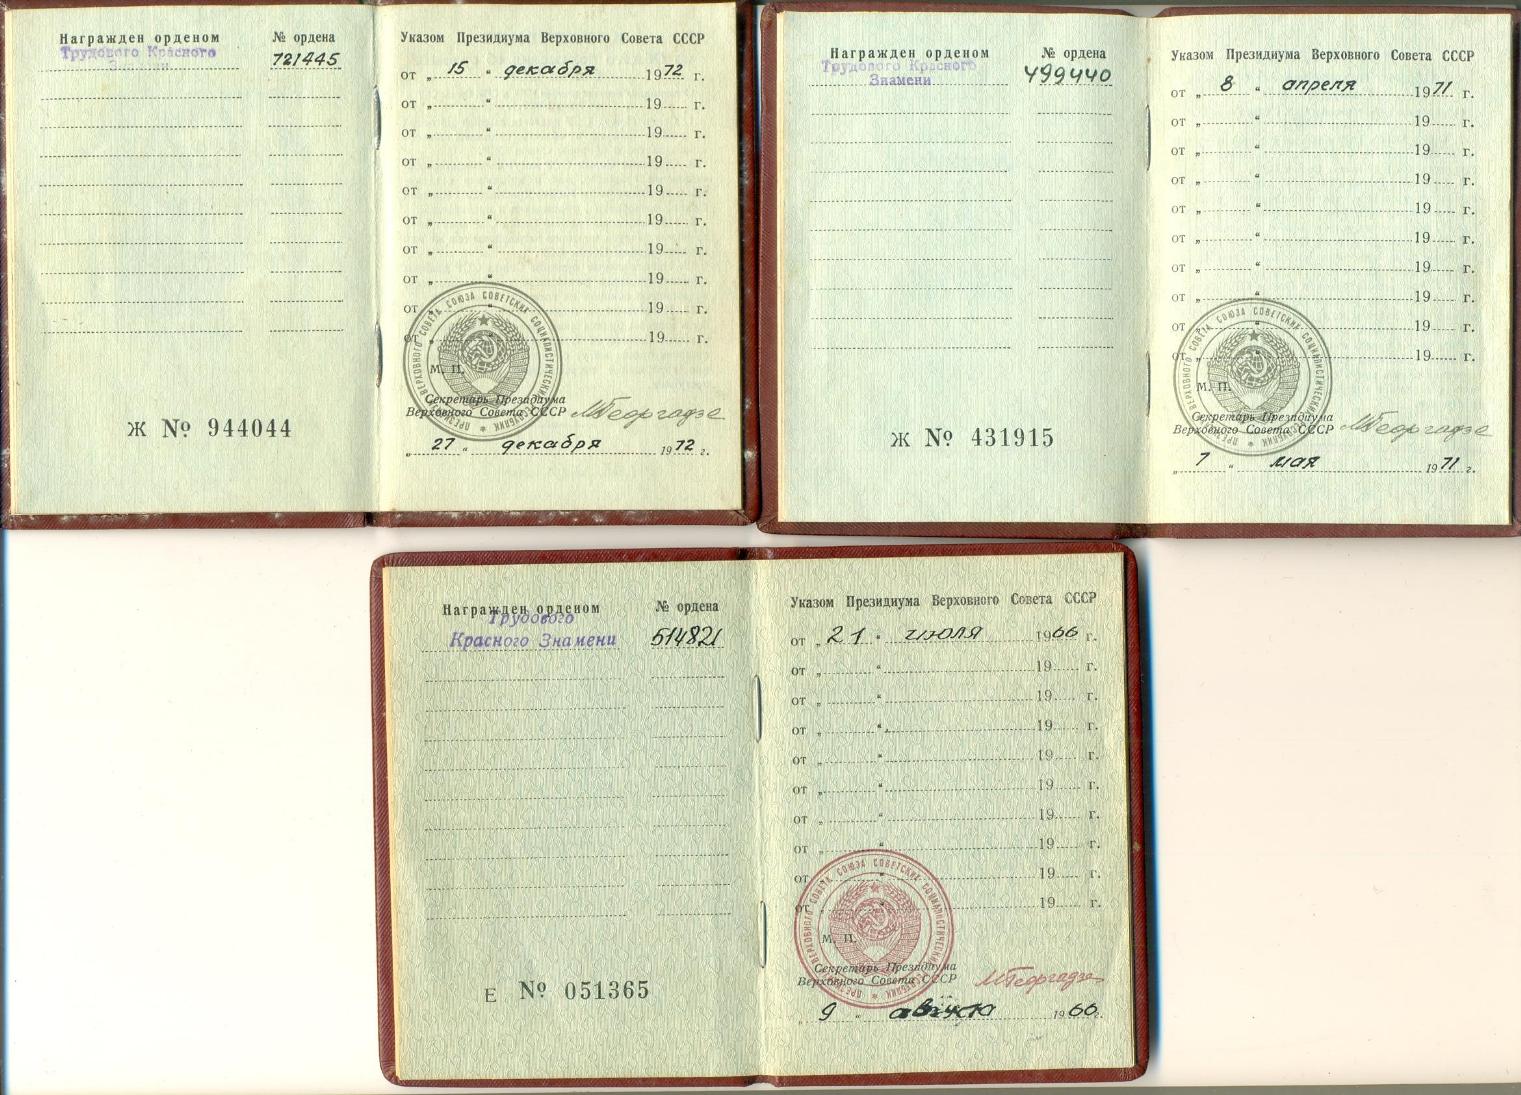 Награжден орденом № ордена
Трудового Красного
Знамени 721445
Ж № 944044
Указом Президиума Верховного Совета СССР
от „ 15 “ декабря 1972 г.
от „ “ 19 г.
от „ “ 19 г.
от „ “ 19 г.
от „ “ 19 г.
от „ “ 19 г.
от „ “ 19 г.
от „ “ 19 г.
от „ “ 19 г.
от „ “ 19 г.
ПРЕЗИДИУМ ВЕРХОВНОГО СОВЕТА СОЮЗА СОВЕТСКИХ СОЦИАЛИСТИЧЕСКИХ РЕСПУБЛИК
М. П.
Секретарь Президиума
Верховного Совета СССР МГеоргадзе
„ 27 “ декабря 1972 г.
Награжден орденом № ордена
Трудового Красного
Знамени 499440
Ж № 431915
Указом Президиума Верховного Совета СССР
от „ 8 “ апреля 1971 г.
от „ “ 19 г.
от „ “ 19 г.
от „ “ 19 г.
от „ “ 19 г.
от „ “ 19 г.
от „ “ 19 г.
от „ “ 19 г.
от „ “ 19 г.
от „ “ 19 г.
ПРЕЗИДИУМ ВЕРХОВНОГО СОВЕТА СОЮЗА СОВЕТСКИХ СОЦИАЛИСТИЧЕСКИХ РЕСПУБЛИК
М. П.
Секретарь Президиума
Верховного Совета СССР МГеоргадзе
„ 7 “ мая 1971 г.
Награжден орденом № ордена
Трудового
Красного Знамени 514821
Е № 051365
Указом Президиума Верховного Совета СССР
от „ 21 “ июля 1966 г.
от „ “ 19 г.
от „ “ 19 г.
от „ “ 19 г.
от „ “ 19 г.
от „ “ 19 г.
от „ “ 19 г.
от „ “ 19 г.
от „ “ 19 г.
от „ “ 19 г.
ПРЕЗИДИУМ ВЕРХОВНОГО СОВЕТА СОЮЗА СОВЕТСКИХ СОЦИАЛИСТИЧЕСКИХ РЕСПУБЛИК
М. П.
Секретарь Президиума
Верховного Совета СССР МГеоргадзе
„ 9 “ августа 1966 г.